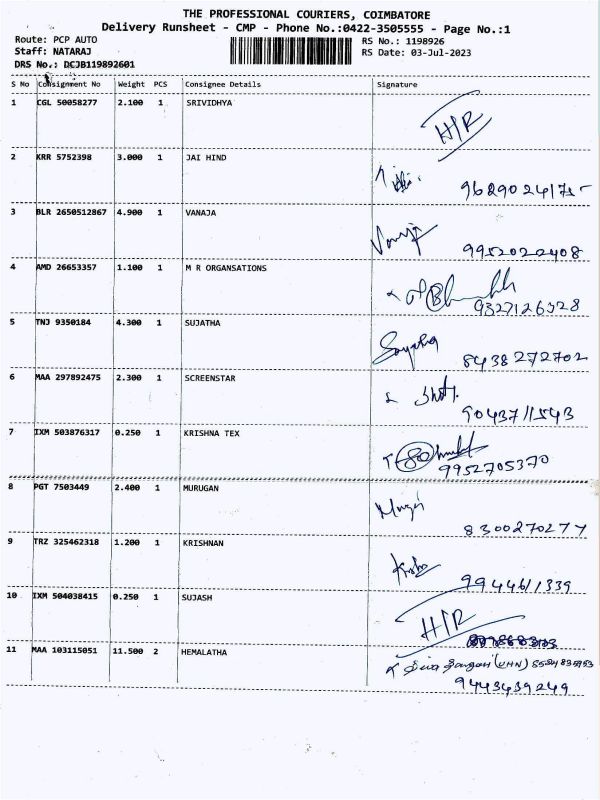 THE PROFESSIONAL COURIERS, COIMBATORE
Delivery Runsheet - CMP - Phone No.:0422-3505555 - Page No.:1
Route: PCP AUTO RS No.: 1198926
Staff: NATARAJ RS Date: 03-Jul-2023
DRS No.: DCJB119892601
S No Consignment No Weight PCS Consignee Details Signature
1 CGL 50058277 2.100 1 SRIVIDHYA
H/R
2 KRR 5752398 3.000 1 JAI HIND
9629024175
3 BLR 2650512867 4.900 1 VANAJA
Vanaja
9952022408
4 AMD 26653357 1.100 1 M R ORGANSATIONS
9327126328
5 TNJ 9350184 4.300 1 SUJATHA
8438272702
6 MAA 297892475 2.300 1 SCREENSTAR
9043711543
7 IXM 503876317 0.250 1 KRISHNA TEX
9952705370
8 PGT 7503449 2.400 1 MURUGAN
8300270277
9 TRZ 325462318 1.200 1 KRISHNAN
9944611339
10 IXM 504038415 0.250 1 SUJASH
H/R
11 MAA 103115051 11.500 2 HEMALATHA
9443439249